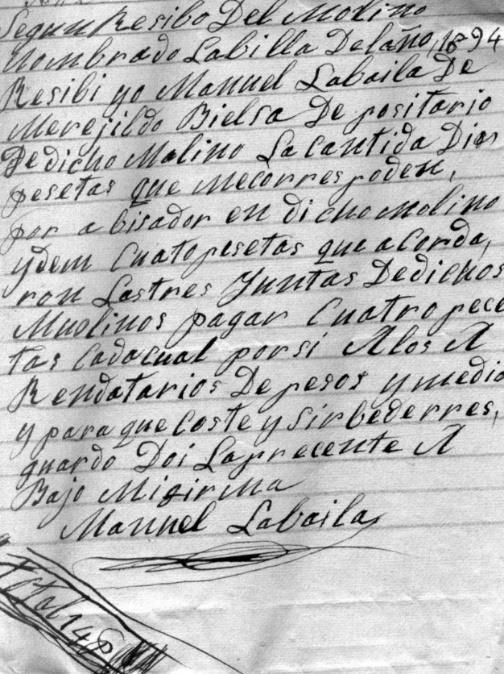 Segun Resibo Del Molino
Nombrado Labilla Delaño, 1894
Resibi yo Manuel Labaila De
Merejildo Bielsa De positario
De dicho Molino La cantida Dies
pesetas que mecorres poden,
por a bisador en dicho molino
ydem Cuatopesetas que acorda,
ron Lastres Juntas Dedichos
Muolinos pagar Cuatro pece
tas Cadacual porsi Alos A
Rendatarios De pesos y medio
y para que Coste y Sirbederres,
guardo Doi Laprecente A
Bajo Mifirma
Manuel Labaila
Total 14 p